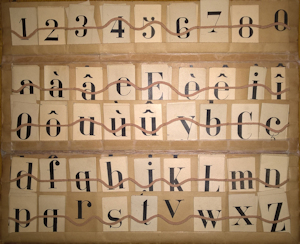 1 2 3 4 5 6 7 8 0
a à â e E è ê i î
o ô u ù û v b C ç
d f g h j k L m n
p q r s t v w x Z